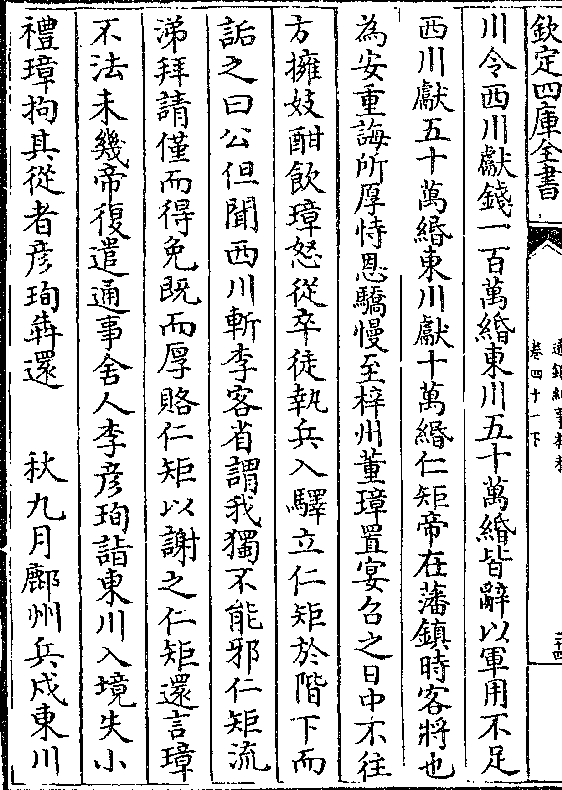 欽定四庫全書
卷四十一下
川令西川獻錢一百萬緡東川五十萬緡皆辭以軍用不足
西川獻五十萬緡東川獻十萬緡仁矩帝在藩鎮時客將也
為安重誨所厚恃恩驕慢至梓州董璋置宴召之日中不往
方擁妓酣飲璋怒從卒徒執兵入驛立仁矩於階下而
詬之曰公但聞西川斬李客省謂我獨不能邪仁矩流
涕拜請僅而得免既而厚賂仁矩以謝之仁矩還言璋
不法未幾帝復遣通事舍人李彦珣詣東川入境失小
禮璋拘其從者彦珣奔還　秋九月鄜州兵戍東川